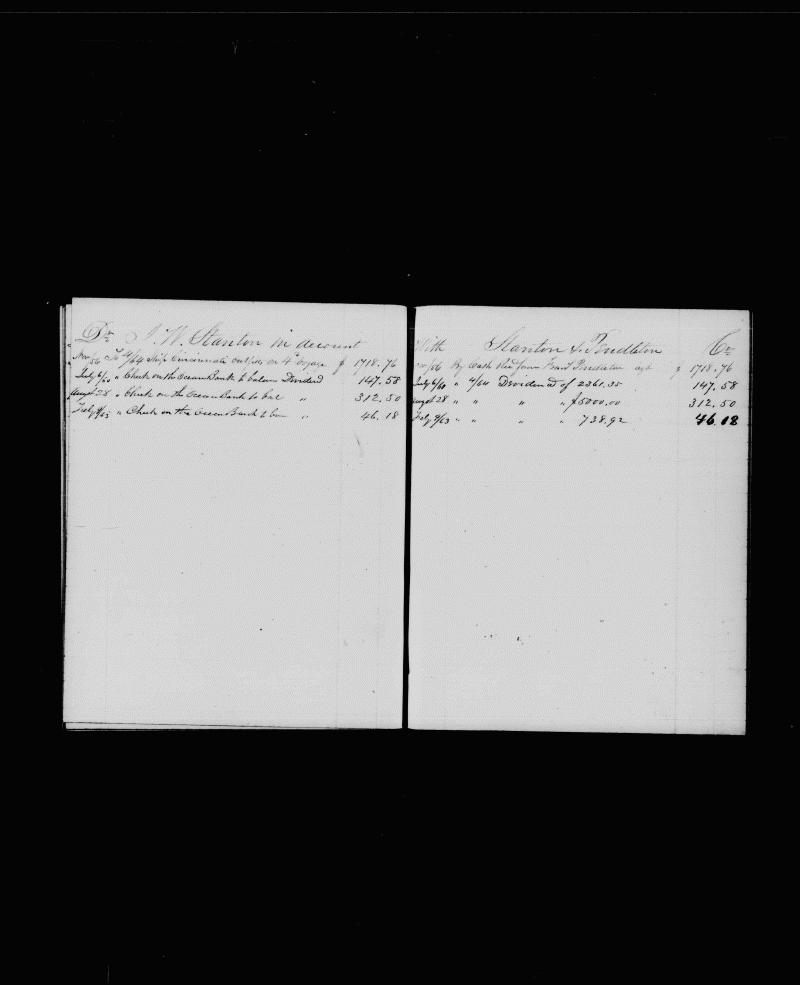 Dr J. W. Stanton in account
Nov/56 To 4/64 Ship Cincinnatis outfits on 4th Voyage $ 1718.76
July 6/60 " Check on the Ocean Bank to balance Dividend 147.58
Augst 28 " Check on the Ocean Bank to bal " 312.50
July 9/63 " Check on the Ocean Bank to bal " 46.18
With Stanton & Pendleton Cr
Nov/56 By Cash Recd from Pendleton $ 1718.76
July 6/60 " 4/64 Dividend of 2361.35 147.58
Augst 28 " " " " $5000.00 312.50
July 9/63 " " " " 738.92 46.18